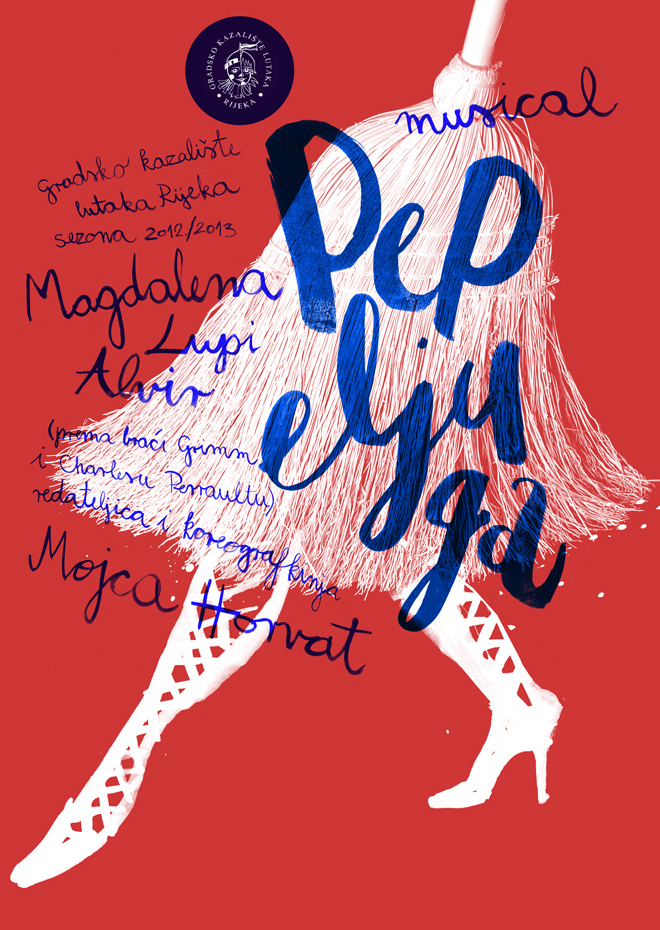 GRADSKO KAZALIŠTE LUTAKA
• RIJEKA •
musical
gradsko kazalište
lutaka Rijeka
sezona 2012/2013
Pep
elju
ga
Magdalena
Lupi
Alvir
(prema braći Grimm
i Charlesu Perraultu)
redateljica i koreografkinja
Mojca
Horvat